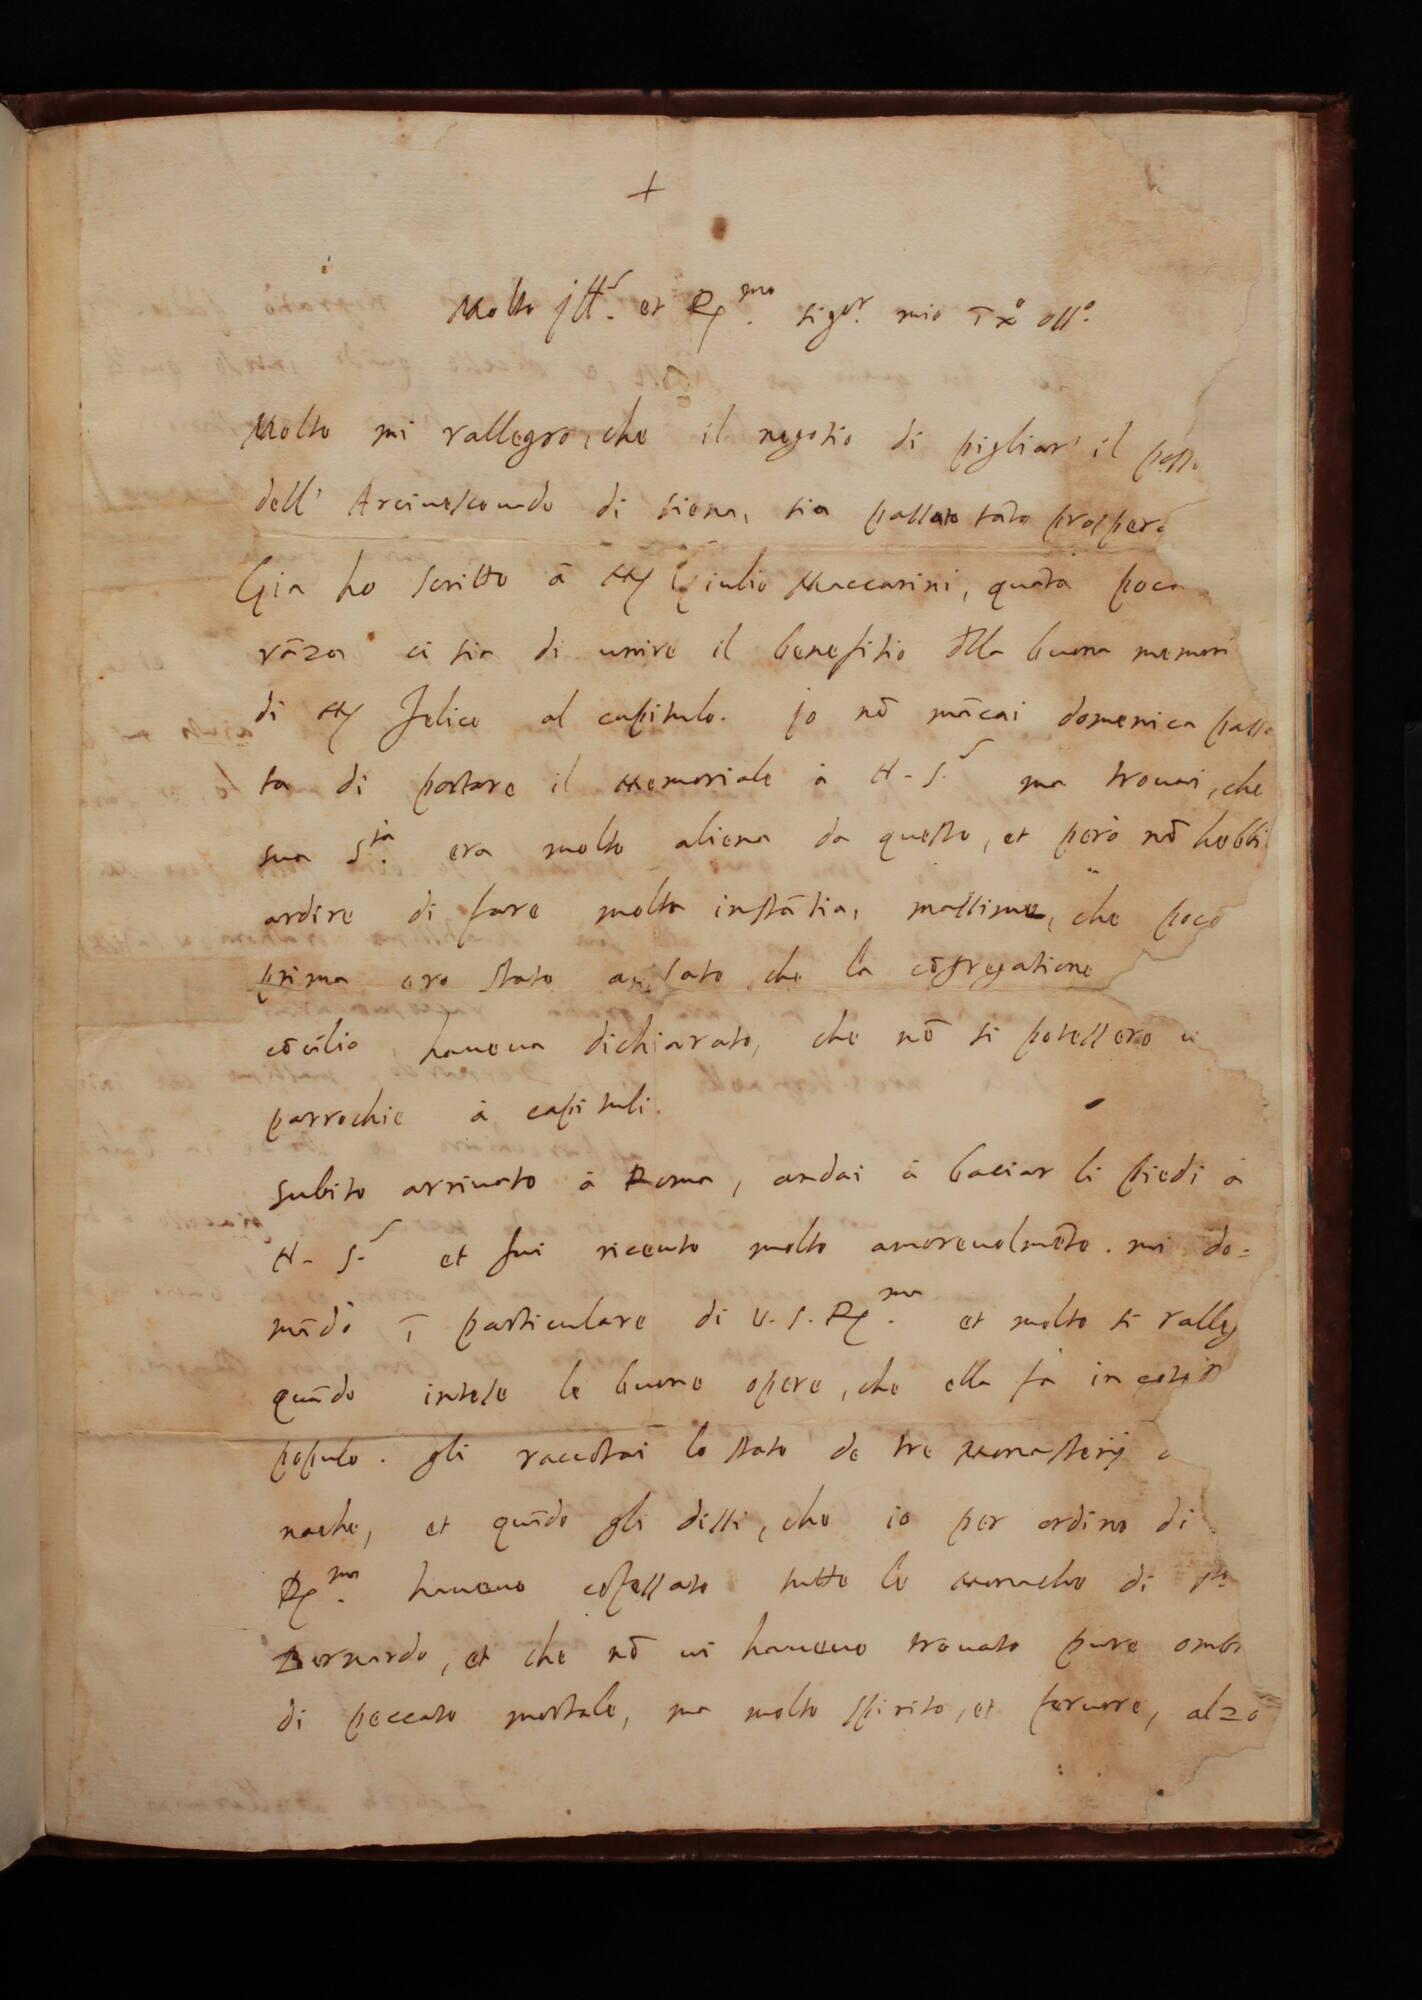 +
Molto Ill.re et R.mo sig.or mio ī x.o oss.o
Molto mi rallegro, che il negotio di pigliar' il poss
dell' Arcivescovado di siena, sia passato tāto prospera
Gia ho scritto à M Giulio Maccarini, quāta poca
rāza ci sia di unire il benefitio dlla buona memori
di M Felice al capitulo. Io nō mācai domenica passa
ta di portare il memoriale à N. S. ma trovai, che
sua S.tà era molto aliena da questo, et però nō hebbi
ardire di fare molta instātia, massime, che poco
prima ero stato avisato, che la cōgregatione
cōcilio, haveva dichiarato, che nō si potessero
parrochie à capituli.
Subito arrivato à Roma, andai à baciar li piedi à
N. S. et fui ricevuto molto amorevolmēte. mi do=
mādò ī particulare di V. S. R.ma et molto siralleg
quādo intese le buone opere, che ella fà in cotest
populo. gli raccōtai lo stato de tre monasterij
nache, et quādo gli dissi, che io per ordine di
R.ma havevo cōfessato tutte le monache di
Bernardo, et che nō vi havevo trovato pure omb
di peccato mortale, ma molto spirito, et fervore, alzò